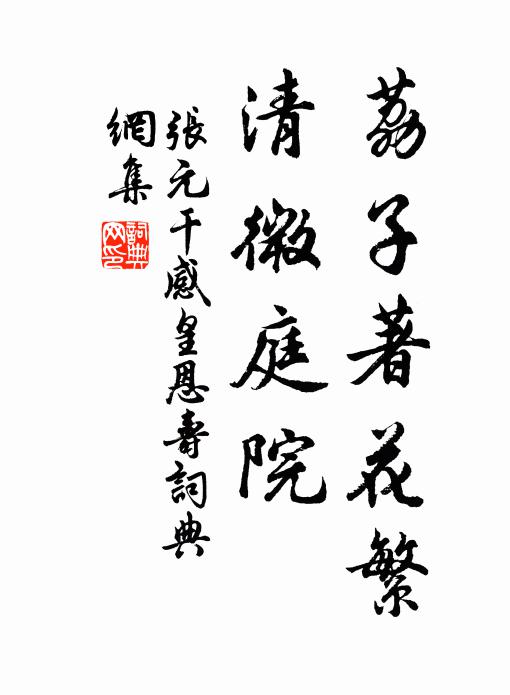 荔子著花繁
清微庭院
張元干感皇恩壽詞典
網集
詞典
网印